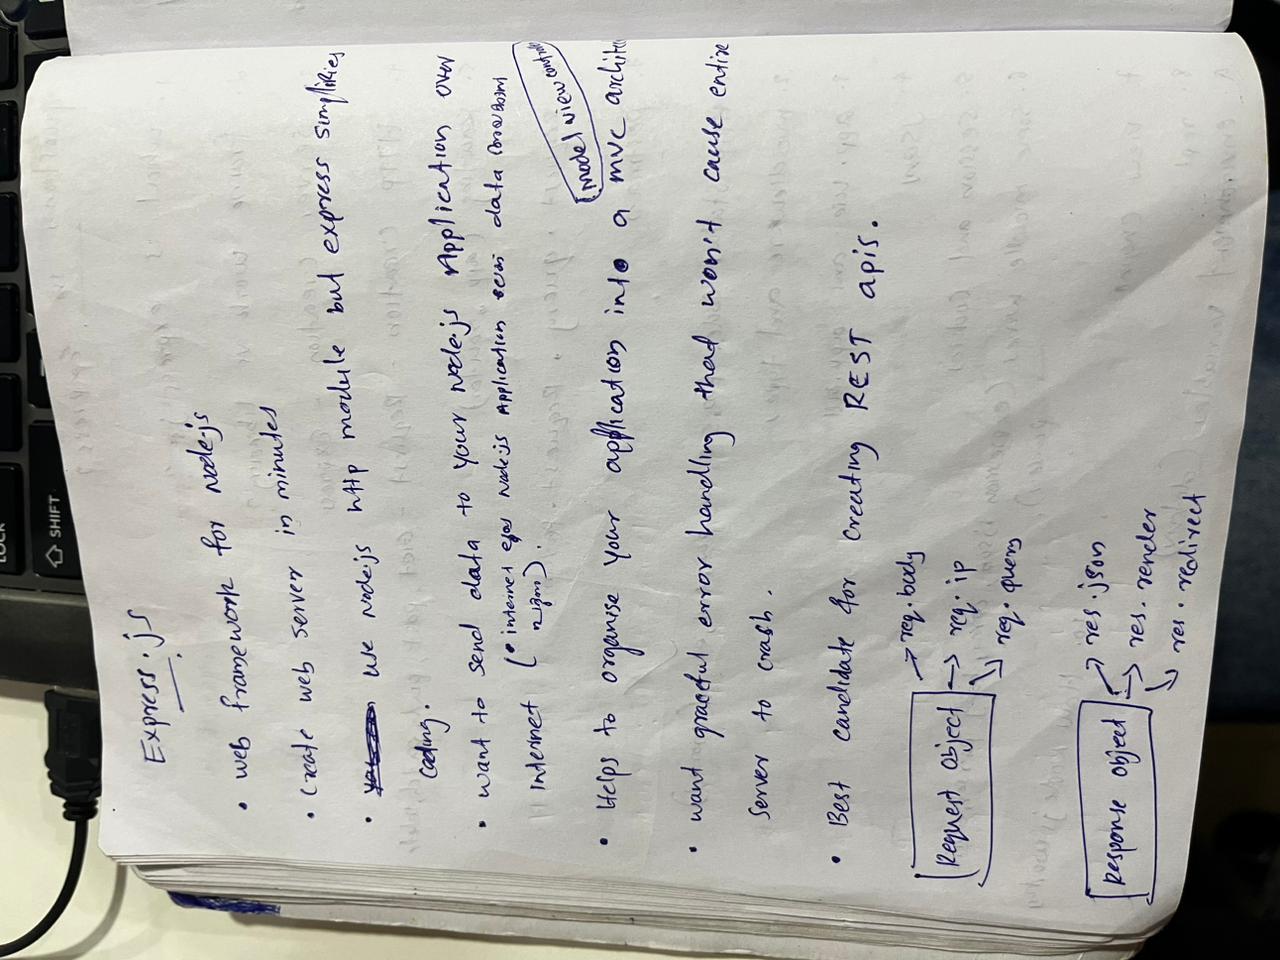 Express.js
• web framework for node.js
• create web server in minutes
• we node.js http module but express simplifies
coding.
• want to send data to your node.js Application over
Internet (• internet node.js Application data
• Helps to organise your application into a mvc archite
(model view controll
• want graceful error handling thad won't cause entire
server to crash.
• Best candidate for creating REST apis.
Request object → req.body
→ req.ip
→ req.query
Response object → res.json
→ res.render
→ res.redirect
SHIFT
LOCK